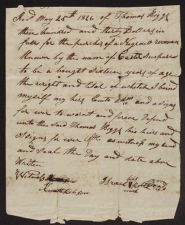 Recd May 25th 1826 of Thomas Higgs
three hundred and thirty Dollars in
full for the purches of a Negroe woman
Known by the name of Easter Suposed
to be a bought Sixteen years of age
the wright and titel of which I bind
myself my heirs Exects and assigns
for ever to warent and forever Defend
unto the said Thomas Higgs his heirs and
assigns for ever as witness my hand
and Seale the Day and date above
Written
Israel
his
mark